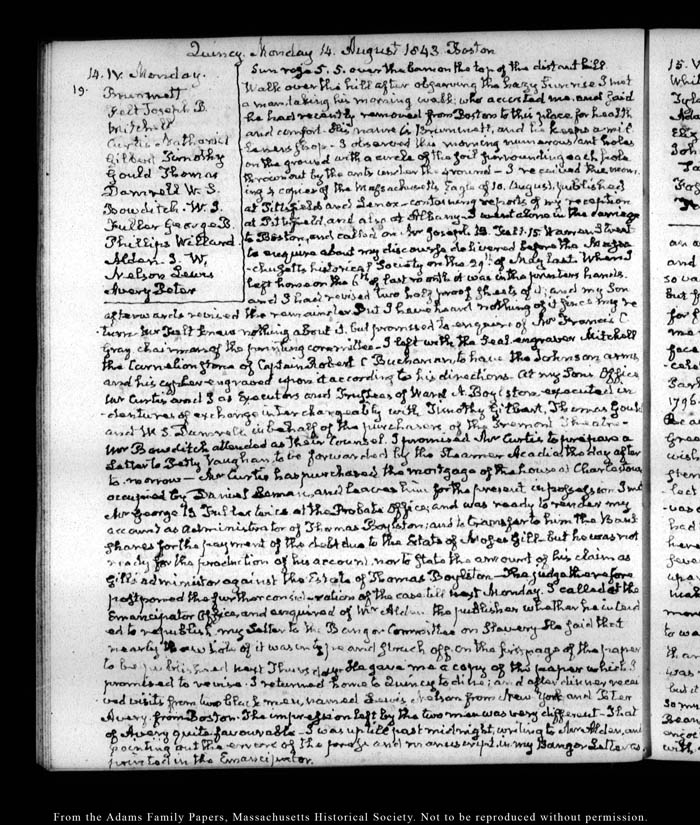 Quincy. Monday 14. August 1843. Boston
14. IV. Monday.
19.
Brummett
Felt Joseph B.
Mitchell
Curtis Nathaniel
Gilbert Timothy
Gould Thomas
Damrell W. S.
Bowditch. W. S.
Fuller George B.
Phillips Willard
Alden. S. W.
Nelson Lewis
Avery Peter
Sun rose 5. 5. over the barn on the top of the distant hill.
Walk over the hill after observing the hazy Sunrise I met
a man, taking his morning walk; who accosted me, and said
he had recently removed from Boston to this place for health
and comfort. His name is Brummett, and he keeps a
shop. I observed this morning numerous ant holes
on the ground with a circle of the soil surrounding each hole
thrown out by the ants under the ground — I received this morn.
ing 2 copies of the Massachusetts Eagle of 10. August, published
at Pittsfield and Lenox — containing reports of my reception
at Pittsfield, and also at Albany — I went alone in the carriage
to Boston, and called on Mr Joseph B. Felt. 15 Warren Street
to enquire about my discourse delivered before the Massa
-chusetts historical Society on the 29th of May last. When I
left home on the 6th of last month it was in the printers hands.
and I had revised two half proof sheets of it; and my Son
afterwards revised the remainder. But I have heard nothing of it since my re
turn. Mr Felt knew nothing about it, but promised to enquire of Mr Francis C.
Gray, chairman of the printing committee — I left with the Seal-engraver Mitchell
the Carnelian Stone of Captain Robert C Buchanan, to have the Johnson arms
and his cypher engraved upon it according to his directions. At my Sons Office
Mr Curtis and I as Executors and Trustees of Ward N. Boylston executed in
-dentures of exchange interchangeably with Timothy Gilbert, Thomas Gould
and W. S. Damrell in behalf of the purchasers of the Tremont Theatre —
Mr Bowditch attended as their Counsel. I promised Mr Curtis to prepare a
Letter to Petty Vaughan, to be forwarded by the Steamer Acadia the day after
to-morrow — Mr Curtis has purchased the mortgage of the house at Charlestown
occupied by Daniel Leman, and leaves him for the present in possession. I met
Mr George B Fuller twice at the Probate Office; and was ready to render my
account as Administrator of Thomas Boylston; and to transfer to him the Bank
Shares for the payment of the debt due to the Estate of Moses Gill. But he was not
ready for the production of his account, nor to State the amount of his claim as
Gill's administrator against the Estate of Thomas Boylston — The judge therefore
postponed the further consideration of the case till next Monday. I called at the
Emancipator Office, and enquired of Mr Alden the publisher whether he intend
ed to republish my Letter to the Bangor Committee on Slavery. He said that
nearly the whole of it was in type and struck off, on the first page of the paper
to be published next Thursday. He gave me a copy of the paper which I
promised to revise. I returned home to Quincy to dine; and after dinner recei
ved visits from two black men, named Lewis Nelson from New York and Peter
Avery from Boston. The impression left by the two men was very different — That
of Avery quite favourable — I was up till past midnight, writing to Mr Alden, and
pointing out the errors of the press and manuscript in my Bangor Letter as
printed in the Emancipator.
15. V
From the Adams Family Papers, Massachusetts Historical Society. Not to be reproduced without permission.